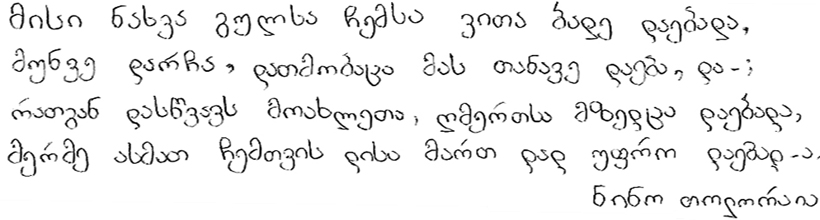 მისი ნახვა გულსა ჩემსა ვითა ბადე დაებადა,
მუნვე დარჩა, დათმობაცა მას თანავე დაება, და-;
რათგან დასწვავს მოახლეთა, ღმერთსა მზედცა დაებადა,
მერმე ასმათ ჩემთვის დისა მართ დად უფრო დაებად-ა.
ნინო თოდორაია